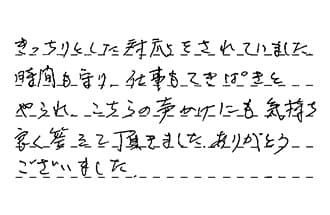 きっちりとした対応をされていました
時間も守り、仕事もてきぱきと
やられ、こちらの声かけにも気持ち
良く答えて頂きました。ありがとう
ございました。